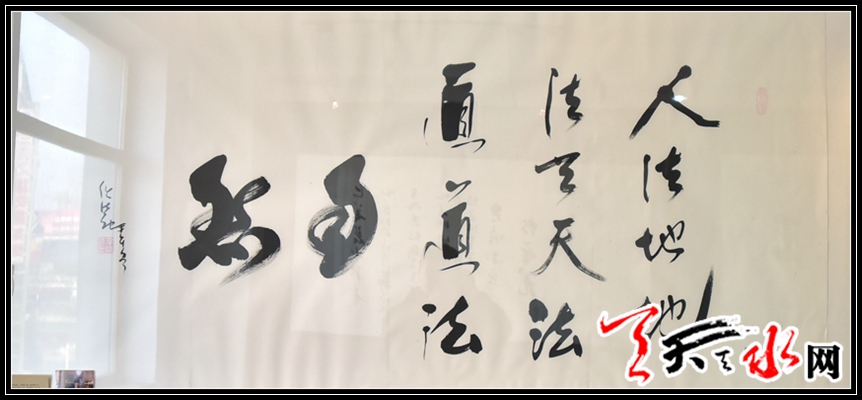 人法地地
法天天法
道道法
自
然
天天天水网